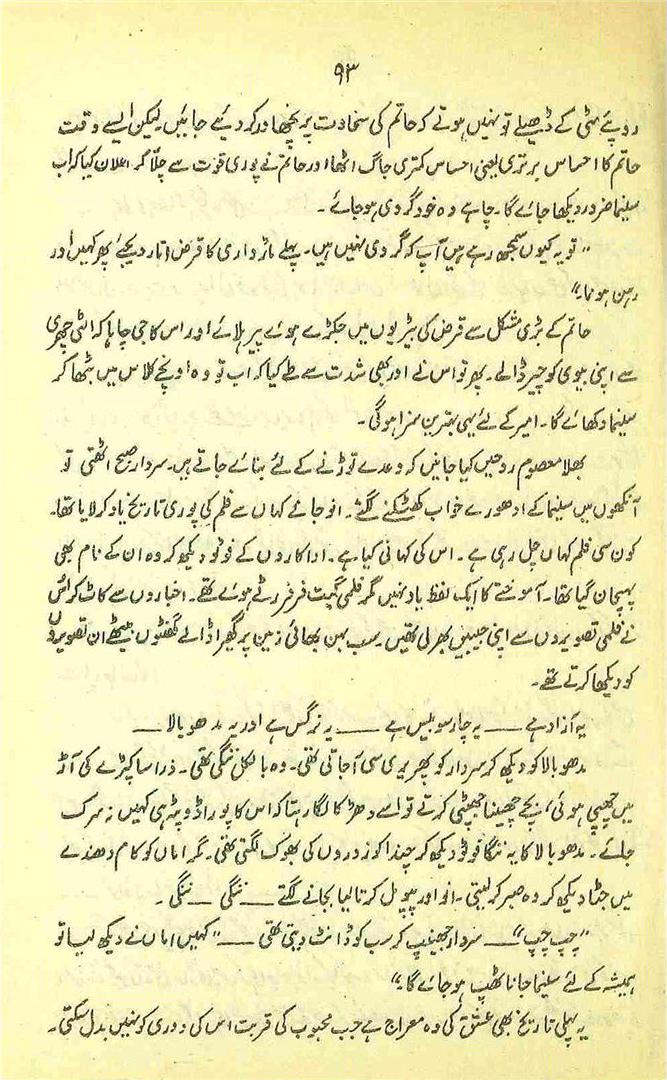 ۹۳
روپئے مٹی کے ڈھیلے تو نہیں ہوتے کہ حاتم کی سخاوت پر نچھاور کر دیئے جائیں۔ لیکن ایسے وقت
حاتم کا احساس برتری یعنی احساس کمتری جاگ اٹھا اور حاتم نے پوری قوت سے چلّا کر اعلان کیا کہ اب
سینما ضرور دیکھا جائے گا۔ چاہے وہ خود گردی ہو جائے۔
”تو یہ کیوں سمجھ رہے ہیں آپ کہ گردی نہیں ہیں۔ پہلے مارواڑی کا قرض اتار دیجئے پھر کہیں اور
رہن ہونا۔“
حاتم کے بڑی مشکل سے قرض کی بیڑیوں میں جکڑے ہوئے پیر ہلائے اور اس کا جی چاہا کہ الٹی چھری
سے اپنی بیوی کو چیر ڈالے۔ پھر تو اس نے اور بھی شدت سے طے کیا کہ اب تو وہ اونچے کلاس میں بٹھا کر
سینما دکھائے گا۔ امیر کے لئے یہی بہترین سزا ہوگی۔
بھلا معصوم روحیں کیا جانیں کہ وعدے توڑنے کے لئے بنائے جاتے ہیں۔ سردار صبح اٹھتی تو
آنکھوں میں سینما کے ادھورے خواب کھٹکنے لگتے۔ انو جانے کہاں سے فلم کی پوری تاریخ یاد کر لایا تھا۔
کون سی فلم کہاں چل رہی ہے۔ اس کی کہانی کیا ہے۔ اداکاروں کے فوٹو دیکھ کر وہ ان کے نام بھی
پہچان گیا تھا۔ آموختے کا ایک لفظ یاد نہیں مگر فلمی گیت فرفر رٹے ہوئے تھے۔ اخباروں سے کاٹ کر اس
نے فلمی تصویروں سے اپنی جیبیں بھر لی تھیں۔ سب بہن بھائی زمین پر گھیرا ڈالے گھنٹوں بیٹھے ان تصویروں
کو دیکھا کرتے تھے۔
یہ آزاد ہے —— یہ چار سو بیس ہے —— یہ نرگس ہے اور یہ مدھو بالا ——
مدھو بالا کو دیکھ کر سردار کو پھریری سی آجاتی تھی۔ وہ بالکل ننگی تھی۔ ذرا سا کپڑے کی آڑ
میں چھپی ہوئی، بچے چھینا جھپٹی کرتے تو اسے دھڑکا لگا رہتا کہ اس کا پورا ڈوپٹہ ہی کہیں نہ سرک
جائے۔ مدھو بالا کا یہ ننگا فوٹو دیکھ کر چندا کو زوروں کی بھوک لگتی تھی۔ مگر اماں کو کام دھندے
میں جٹا دیکھ کر وہ صبر کر لیتی۔ انو اور پیوپل کر تالیا بجانے لگتے —— ننگی —— ننگی۔
”چپ چپ“ —— سردار جھینپ کر سب کو ڈانٹ دیتی تھی —— ”کہیں اماں نے دیکھ لیا تو
ہمیشہ کے لئے سینما جانا ٹھپ ہو جائے گا۔“
یہ پہلی تاریخ بھی عشق کی وہ معراج ہے جب محبوب کی قربت اس کی دوری کو نہیں بدل سکتی۔